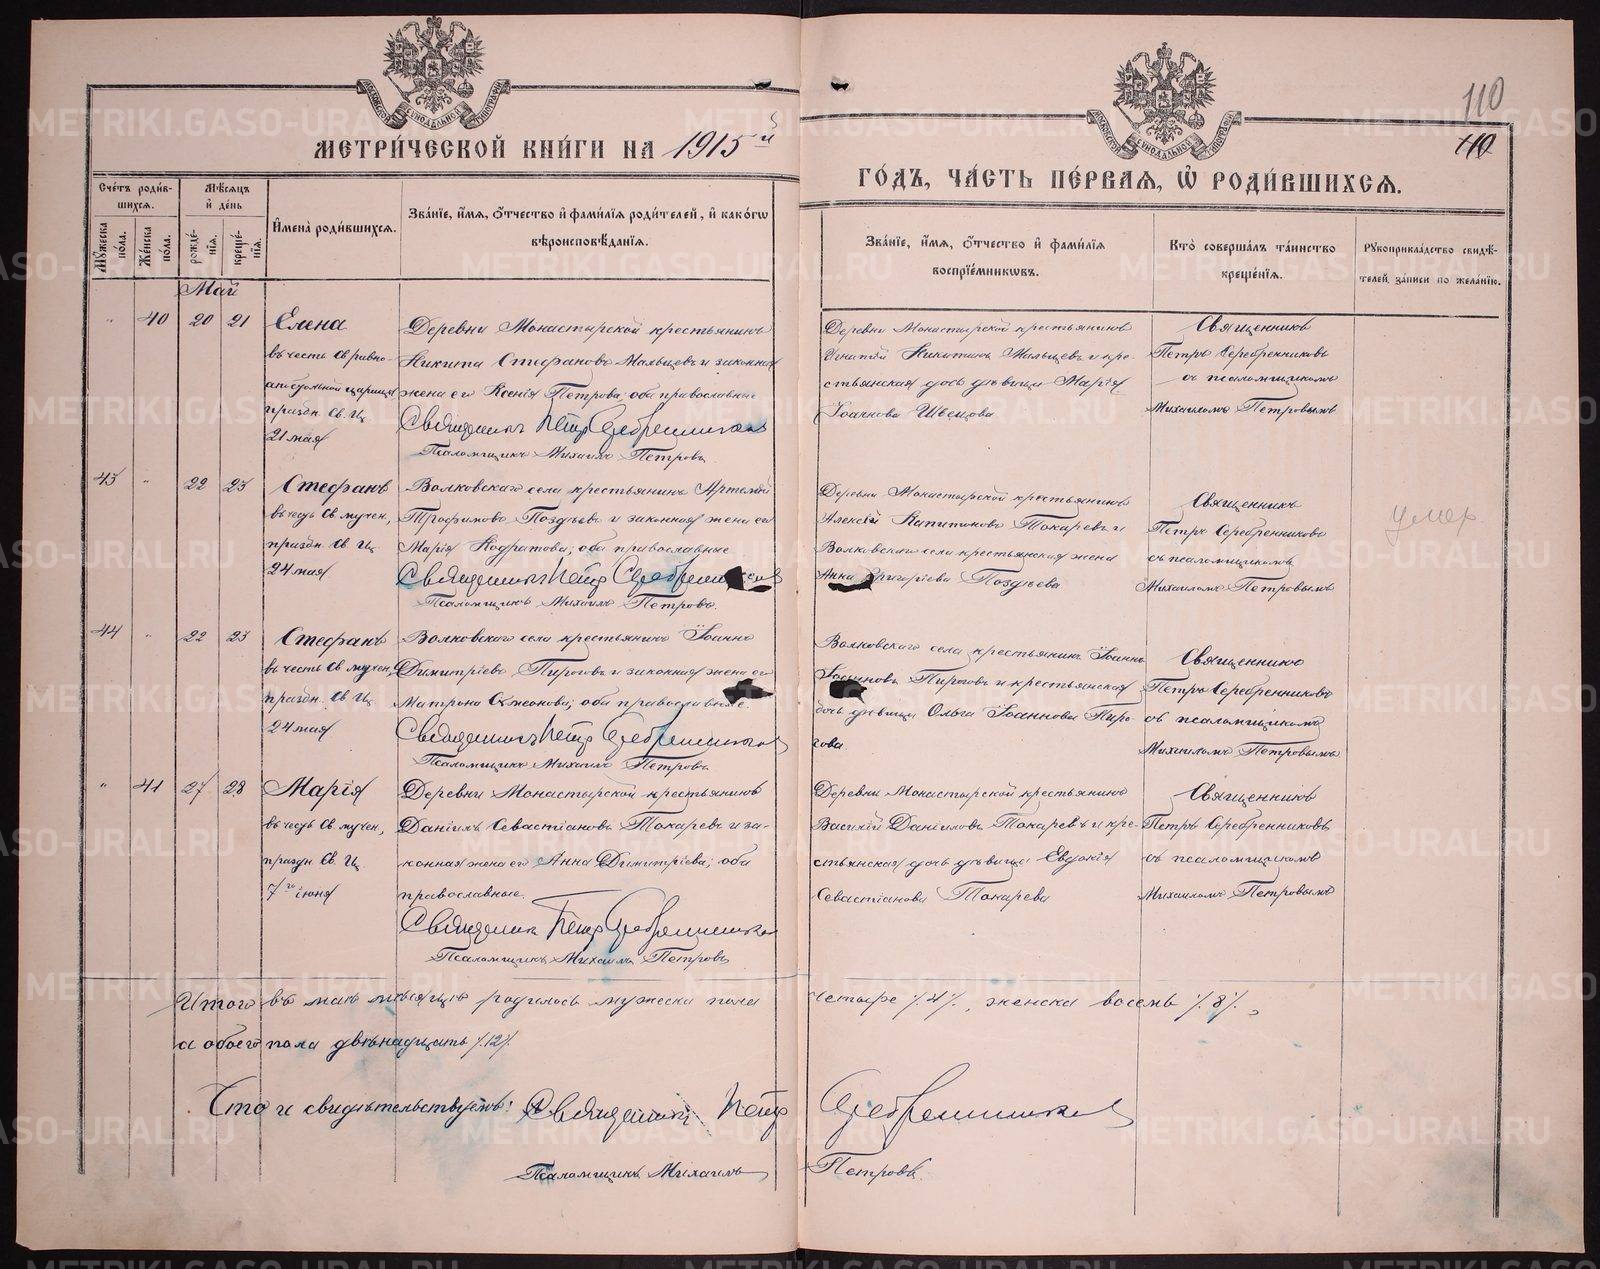 110
110
МЕТРИ́ЧЕСКОЙ КНИ́ГИ НА 1915 й
ГО́ДЪ, ЧА́СТЬ ПЕ́РВАЯ, Ѽ РОДИ́ВШИХСЯ.
Сче́тъ роди́вшихся.
Мꙋ́жеска по́ла.
Же́нска по́ла.
Мѣ́сяцъ и҆ де́нь
рожде́нїя.
креще́нїя.
И҆мена̀ роди́вшихся.
Зва́нїе, и҆́мя, ѻ҆́тчество и҆ фами́лїя роди́телей, и҆ како́гѡ
вѣроисповѣ́данїя.
Зва́нїе, и҆́мя, ѻ҆́тчество и҆ фами́лїя
воспрїе́мникѡвъ.
Кто̀ соверша́лъ та́инство
креще́нїя.
Рꙋкоприкла́дство свидѣ́-
телей за́писи по жела́нїю.
Май
" 40 20 21 Елена
въ честь Св равно-
апостольной царицы
праздн. Св. Ц.
21 мая
Деревни Монастырской крестьянинъ
Никита Стефановъ Мальцевъ и законная
жена его Ксенія Петрова; оба православные
Священникъ Петр Серебренников
Псаломщикъ Михаилъ Петровъ.
Деревни Монастырской крестьянинъ
Игнатій Никитинъ Мальцевъ и кре-
стьянская дочь дѣвица Марія
Іоаннова Швецова
Священникъ
Петръ Серебренниковъ
съ псаломщикомъ
Михаиломъ Петровымъ
43 " 22 23 Стефанъ
въ честь Св мучен,
праздн. Св Ц.
24 мая
Волковскаго села крестьянинъ Артемій
Трофимовъ Поздѣевъ и законная жена его
Марія Кодратова; оба православные
Священникъ Петр Серебренников
Псаломщикъ Михаилъ Петровъ.
Деревни Монастырской крестьянинъ
Алексій Капитоновъ Токаревъ и
Волковскаго села крестьянская жена
Анна Григоріева Поздѣева
Священникъ
Петръ Серебренниковъ
съ псаломщикомъ
Михаиломъ Петровымъ
умер.
44 " 22 23 Стефанъ
въ честь Св мучен,
праздн. Св Ц.
24 мая
Волковскаго села крестьянинъ Іоаннъ
Димитріевъ Пироговъ и законная жена его
Матрона Симеонова; оба православные.
Священникъ Петр Серебренников
Псаломщикъ Михаилъ Петровъ.
Волковскаго села крестьянинъ Іоаннъ
Іоанновъ Пироговъ и крестьянская
дочь дѣвица Ольга Іоаннова Пиро-
гова
Священникъ
Петръ Серебренниковъ
съ псаломщикомъ
Михаиломъ Петровымъ
" 41 27 28 Марія
въ честь Св мучен,
праздн Св Ц
7го іюня
Деревни Монастырской крестьянинъ
Даніилъ Севастіановъ Токаревъ и за-
конная жена его Анна Димитріева; оба
православные.
Священник Петр Серебренников
Псаломщикъ Михаилъ Петровъ
Деревни Монастырской крестьянинъ
Василій Даніиловъ Токаревъ и кре-
стьянская дочь дѣвица Евдокія
Севастіанова Токарева
Священникъ
Петръ Серебренниковъ
съ псаломщикомъ
Михаиломъ Петровымъ
Итого въ маѣ мѣсяцѣ родилось мужеска пола четыре /.4/., женска восемь /.8/.,
а обоего пола двѣнадцать /.12/.
Что и свидѣтельствуемъ: Священник Петр Серебренников
Псаломщикъ Михаилъ Петровъ.
METRIKI.GASO-URAL.RU